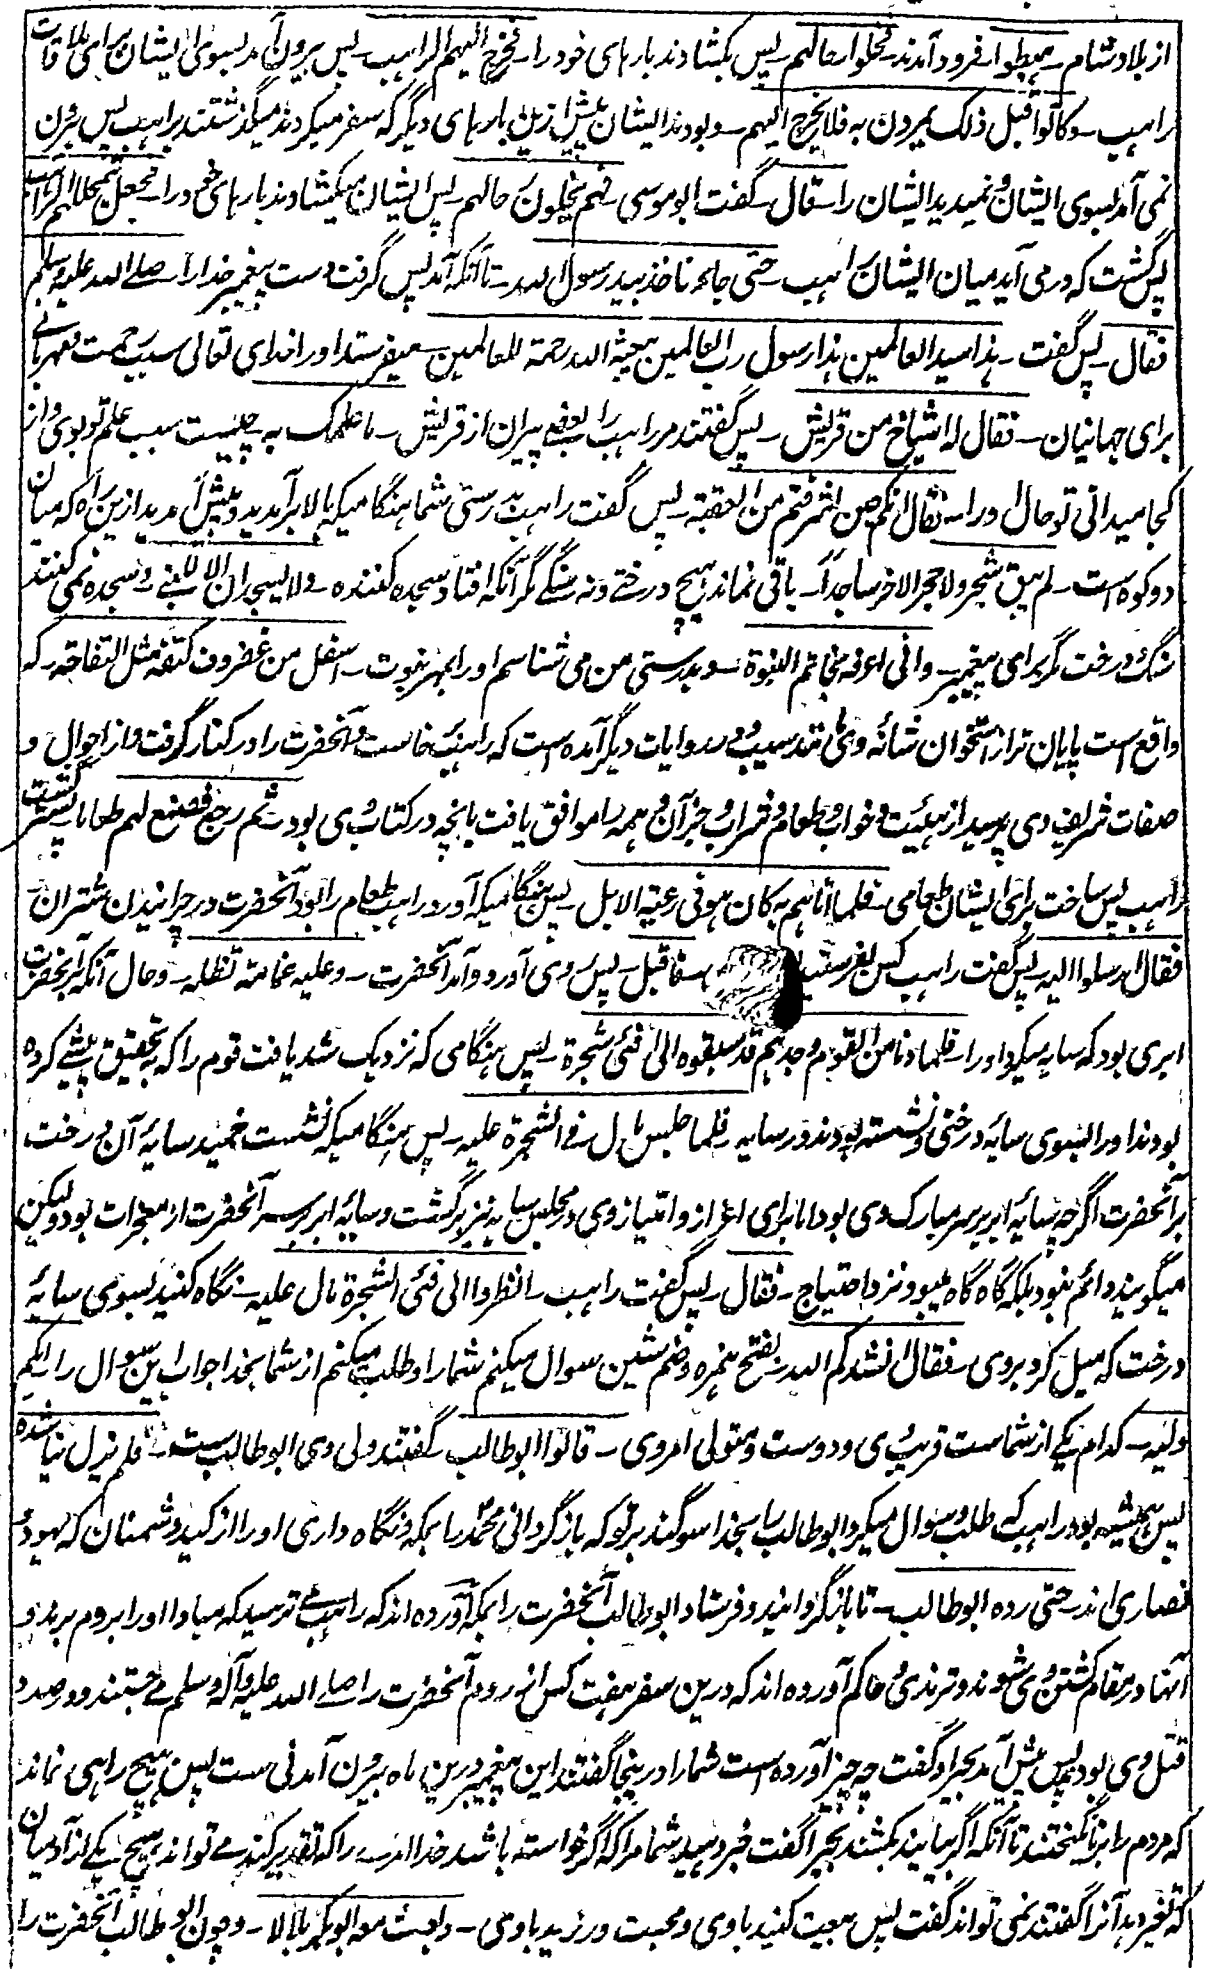 از بلاد شام ـ هبطوا ـ فرود آمدند ـ فحلوا رحالهم ـ پس بکشادند بارهای خود را ـ فخرج الیهم الراهب ـ پس بیرون آمد بسوی ایشان برای ملاقات
راهب ـ وکانوا قبل ذلک یمرون به فلا یخرج الیهم ـ و بودند ایشان پیش ازین بارهای دیگر که سفر میکردند میگذشتند براهب پس بیرون
نمی آمد بسوی ایشان و نمیدید ایشان را ـ قال ـ گفت ابو موسی ـ فهم یحلون رحالهم ـ پس ایشان میکشادند بارهای خود را ـ فجعل یتخللهم الراهب
پس گشت که درمی آید میان ایشان راهب ـ حتی جاء فاخذ بید رسول الله ـ تا آنکه آمد پس گرفت دست پیغمبر خدا را ـ صلے الله علیه وسلم
فقال ـ پس گفت ـ هذا سید العالمین هذا رسول رب العالمین یبعثه الله رحمة للعالمین ـ میفرستد او را خدای تعالی سبب رحمت و مهربانے
برای جهانیان ـ فقال له اشیاخ من قریش ـ پس گفتند مر راهب را بعضے پیران از قریش ـ ما علمک به چیست سبب علم تو بوی و از
کجا میدانی تو حال او را ـ فقال انکم حین اشرفتم من العقبة ـ پس گفت راهب بدرستی شما هنگامیکه بالا برآمدید و پیش آمدید ازین راه که میان
دو کوه است ـ لم یبق شجر ولا حجر الا خر ساجداً ـ باقی نماند هیچ درختے و نه سنگے مگر آنکه افتاد سجده کننده ـ ولا یسجدان الا لنبی ـ و سجده نمی کنند
سنگ و درخت مگر برای پیغمبر ـ وانی اعرفه بخاتم النبوة ـ و بدرستی من می شناسم او را بمهر نبوت ـ اسفل من غضروف کتفه مثل التفاحة ـ که
واقع است پایان تر از استخوان شانهٔ وی مانند سیب و در روایات دیگر آمده است که راهب برخاست و آنحضرت را در کنار گرفت و از احوال و
صفات شریف وی پرسید از هیئت و خواب و طعام و شراب و جز آن و همه را موافق یافت بآنچه در کتاب وی بود ـ ثم رجع فصنع لهم طعاما ـ پستر گشت
راهب پس ساخت برای ایشان طعامی ـ فلما اتاهم به کان هو فی رعیة الابل ـ پس هنگامیکه آورد راهب طعام را بود آنحضرت در چرانیدن شتران ـ
فقال ارسلوا الیه ـ پس گفت راهب کس بفرستید ـ فاقبل ـ پس روی آورد و آمد آنحضرت ـ وعلیه غمامة تظله ـ و حال آنکه بر آنحضرت
ابری بود که سایه میکرد او را ـ فلما دنا من القوم وجدهم قد سبقوه الی فیٔ شجرة ـ پس هنگامی که نزدیک شد یافت قوم را که به تحقیق پیشے کرده
بودند او را بسوی سایهٔ درختی و نشسته بودند در سایه ـ فلما جلس مال فے الشجرة علیه ـ پس هنگامیکه نشست خمید سایهٔ آن درخت
بر آنحضرت اگرچه سایهٔ ابر بر سر مبارک وی بود اما برای اعزاز و امتیاز وی در مجلس سایه نیز برگشت و سایهٔ ابر بر سر آنحضرت از معجزات بود ولیکن
میگویند دائم نبود بلکه گاه گاه میبود نزد احتیاج ـ فقال ـ پس گفت راهب ـ انظروا الی فیٔ الشجرة مال علیه ـ نگاه کنید بسوی سایه
درخت که میل کرد بروی ـ فقال انشدکم الله ـ بفتح همزه و ضم شین سوال میکنم شما را و طلب میکنم از شما بخدا جواب این سوال را ایکم
ولیه ـ کدام یکے از شماست قریب وی و دوست و متولی امر وی ـ قالوا ابو طالب ـ گفتند ولی وی ابو طالب ست ـ فلم یزل یناشده
پس همیشه بود راهب که طلب و سوال میکرد ابو طالب را بخدا سوگند بر تو که بازگردانی محمد را بمکه و نگاه داری او را از کید دشمنان که یهود و
نصاری اند ـ حتی رده ابو طالب ـ تا بازگردانید و فرستاد ابو طالب آنحضرت را بمکه آورده اند که راهب مے ترسید که مبادا او را بروم برند و
آنها در مقام کشتن وی شوند و ترمذی و حاکم آورده اند که درین سفر هفت کس از روم آنحضرت را صلے الله علیه وآله وسلم مے جستند و در صدد
قتل وی بودند پس پیش آمد بحیرا و گفت چه چیز آورده است شما را در ینجا گفتند این پیغمبر درین ماه بیرون آمدنی ست پس هیچ راهی نماند
که مردم را برانگیختند تا آنکه اگر بیابند بکشند بحیرا گفت خبر دهید شما مرا که اگر خواسته باشد خدا امرے را که تقدیر کند مے تواند هیچ یکے از آدمیان
که تغیر دهد آنرا گفتند نمی تواند گفت پس بیعت کنید باوی و محبت ورزید باوی ـ وبعث معه ابو بکر بلالا ـ و چون ابو طالب آنحضرت را